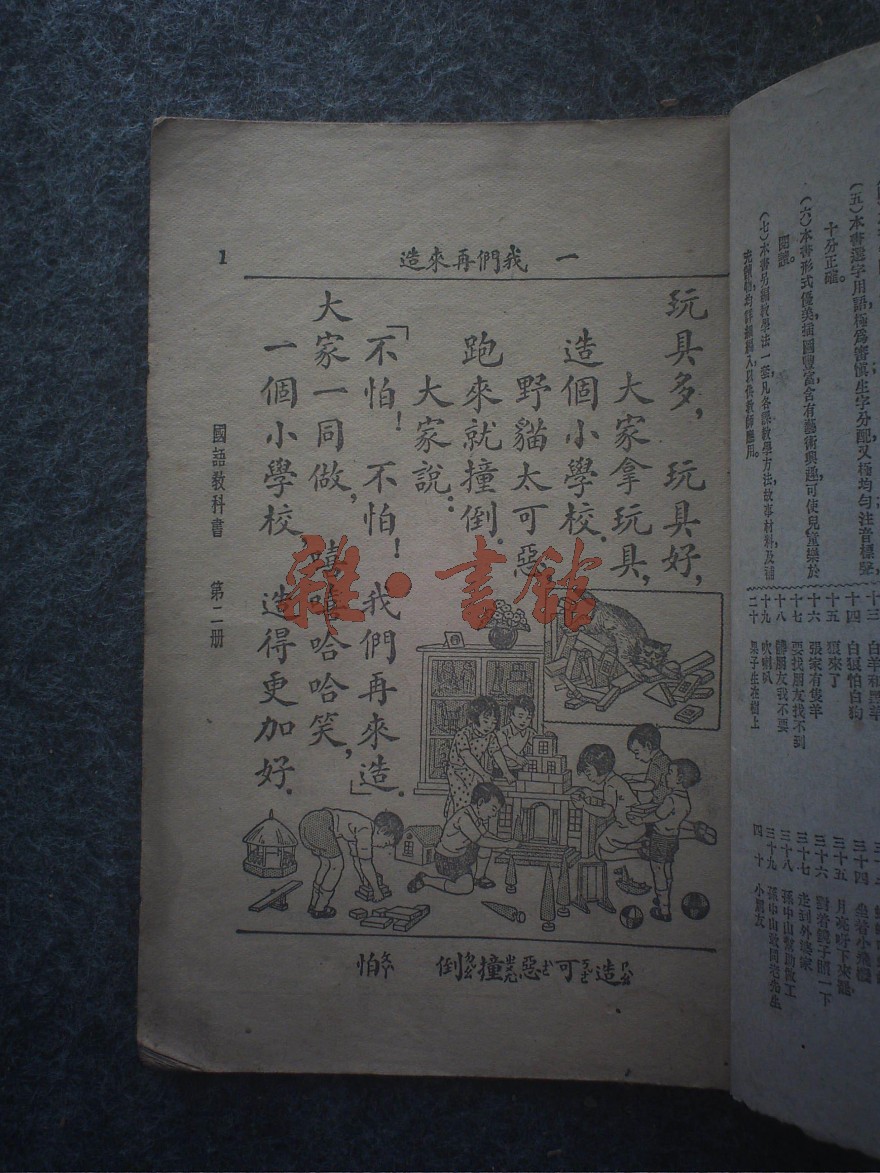 (五)本書選字用語,極爲審慎,生字分配,又極均勻,注音標
十分正確。
(六)本書形式優美,插圖豐富,含有藝術興趣,可使兒童樂於
閱讀。
(七)本書另編教學法一套,凡各課教學方法,故事材料,及補
十四 白狼怕白狗
十五 狼來了
十六 張家有隻羊
十七 要找朋友找不到
十八 髒朋友我不要
十九 吹喇叭
二十 果子生在樹上
三十四 坐着小飛機
三十五 月亮呀下來罷
三十六 對着鏡子照一下
三十七 走到外婆家
三十八 孫中山幫助做工
三十九 孫中山敬問老先生
四十 小朋友
一 我們再來造
玩具多,玩具好,
大家拿玩具,
造個小學校。
野貓太可惡
跑來就撞倒。
大家說:
「不怕!不怕!我們再來造」。
大家一同做,嘻嘻哈哈笑,
一個小學校,造得更加好。
造 可 惡 撞 倒 怕
國語教科書 第二册
1
雜·書館